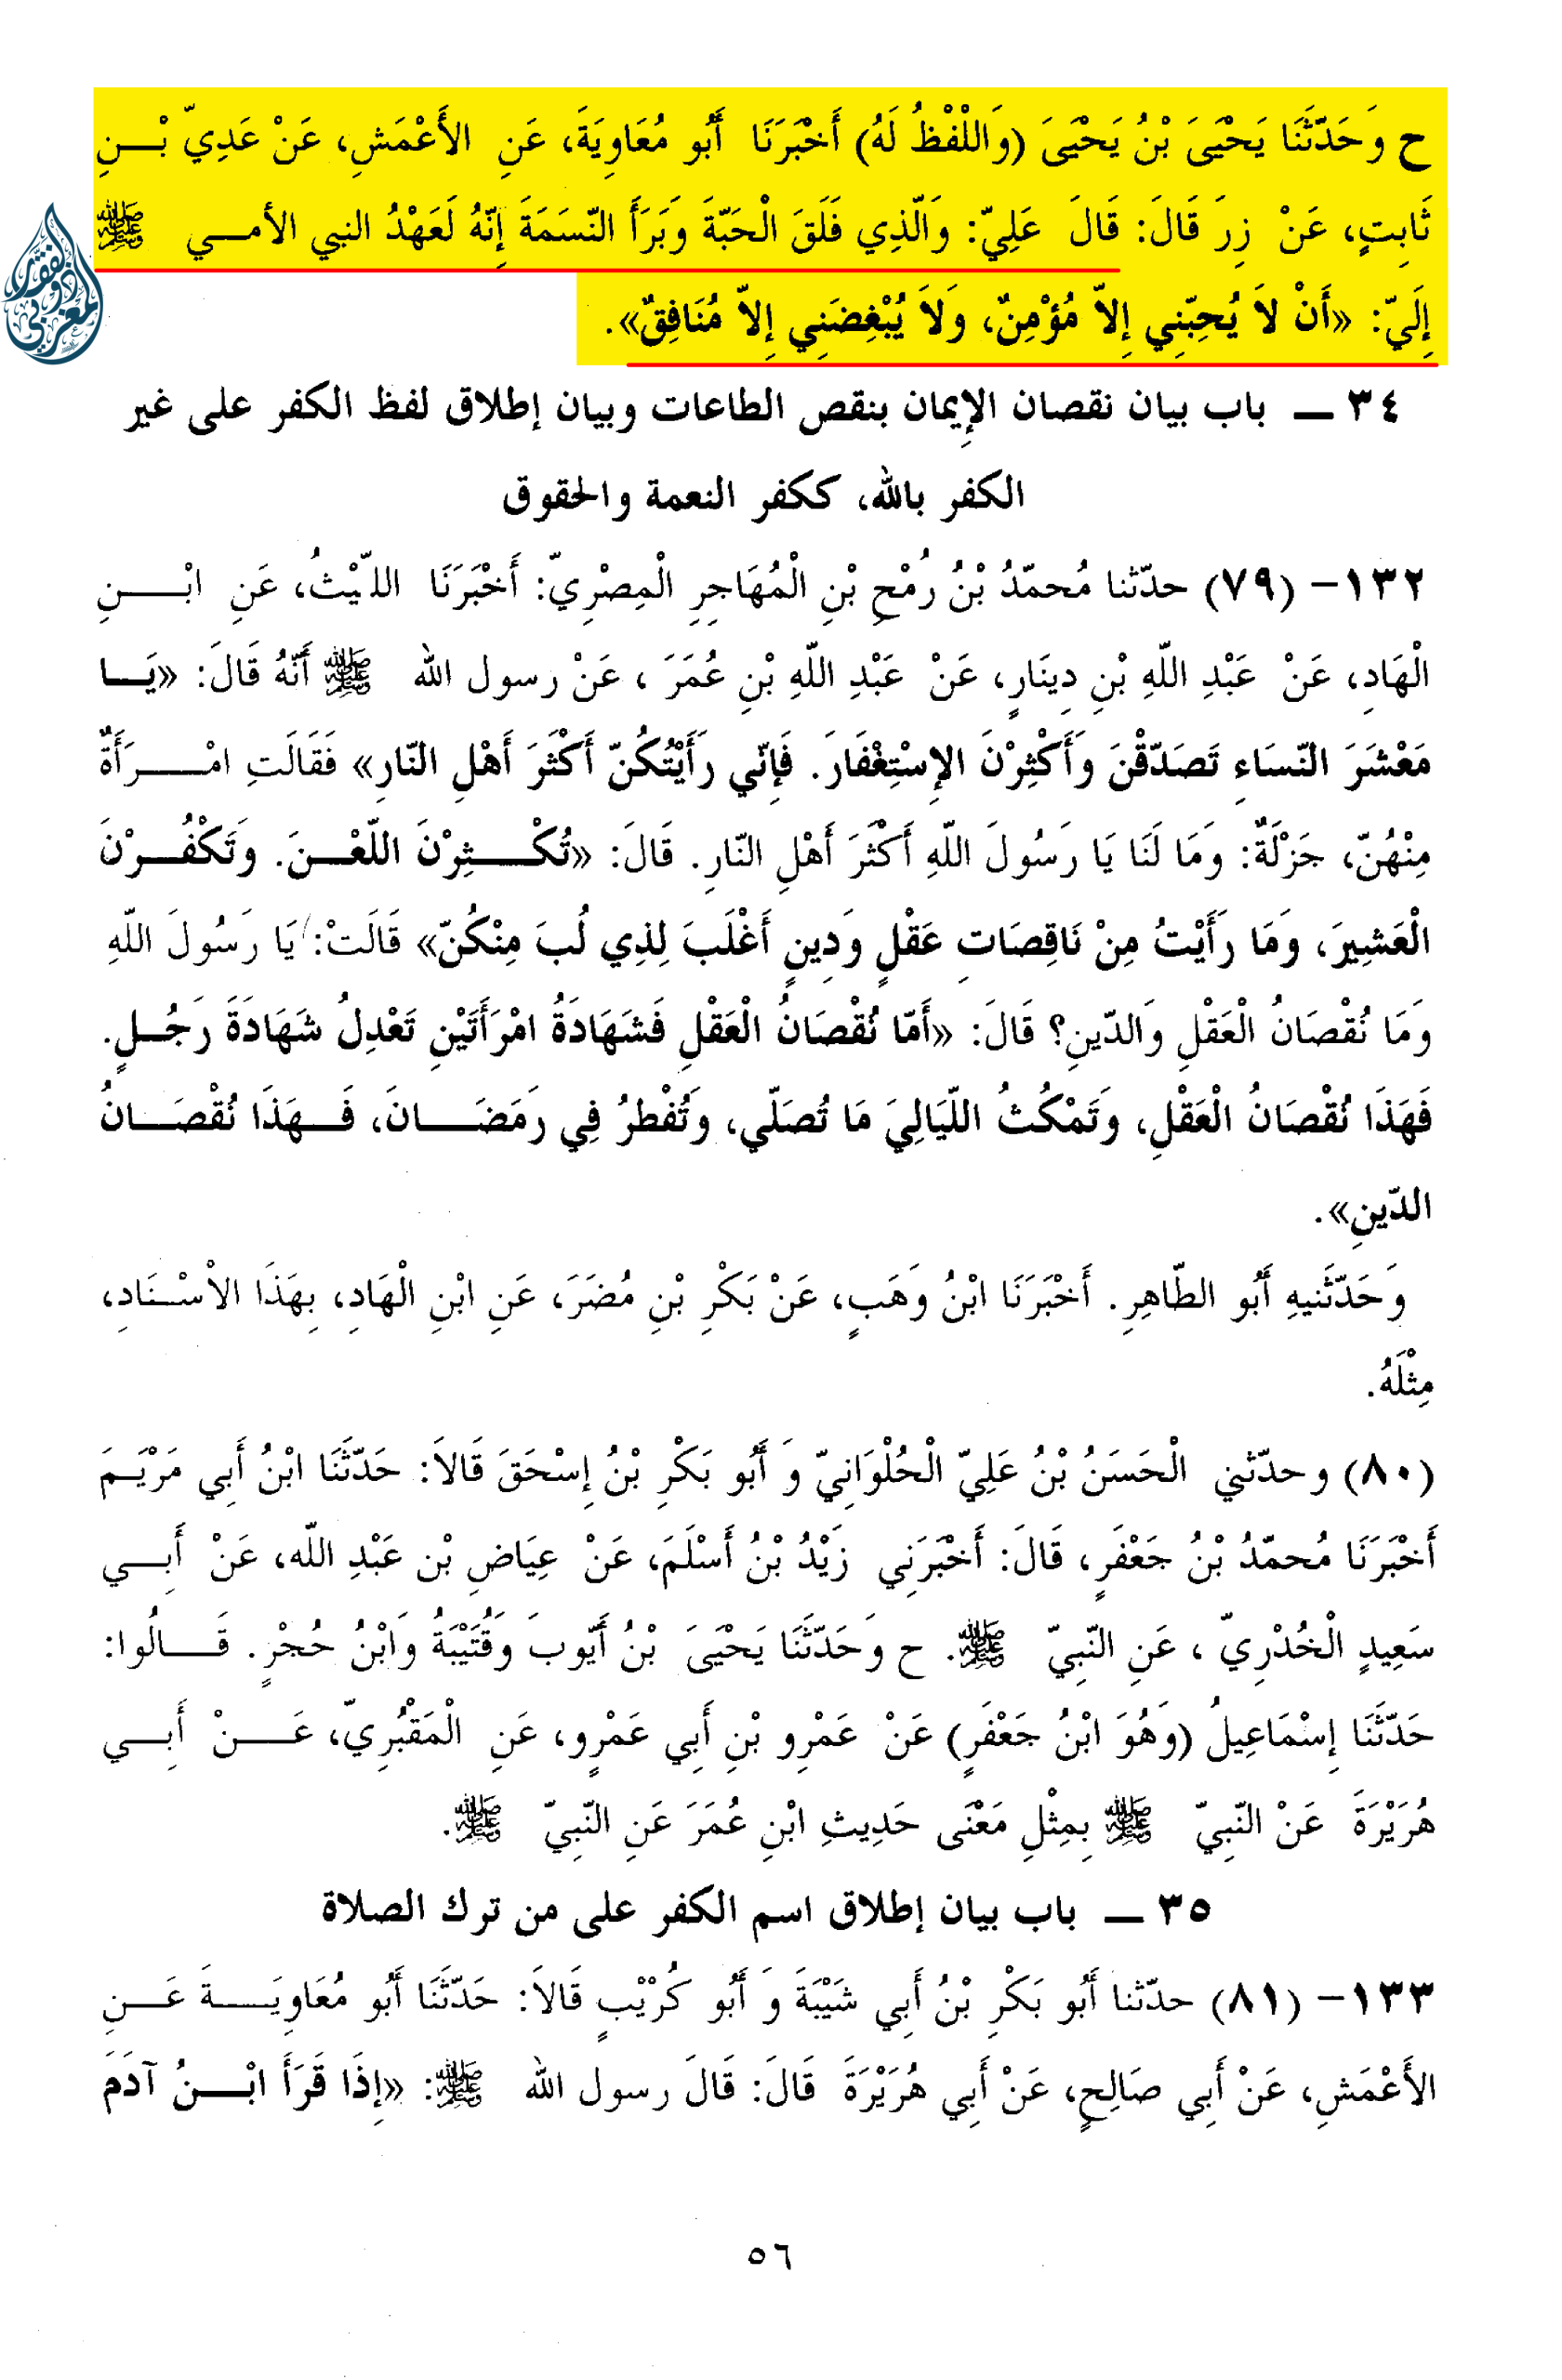 ح وَحَدّثَنَا يَحْيَىَ بْنُ يَحْيَىَ (وَاللّفْظُ لَهُ) أَخْبَرَنَا أَبُو مُعَاوِيَةَ، عَنِ الأَعْمَشِ، عَنْ عَدِيّ بْـــنِ
ثَابِتٍ، عَنْ زِرَ قَالَ: قَالَ عَلِيّ: وَالّذِي فَلَقَ الْحَبّةَ وَبَرَأَ النّسَمَةَ إِنّهُ لَعَهْدُ النبي الأمـــي ﷺ
إِلَيّ: «أَنْ لاَ يُحِبّنِي إِلاّ مُؤْمِنٌ، وَلاَ يُبْغِضَنِي إِلاّ مُنَافِقٌ».
٣٤ ــ باب بيان نقصان الإِيمان بنقص الطاعات وبيان إطلاق لفظ الكفر على غير
الكفر بالله، ككفر النعمة والحقوق
١٣٢- (٧٩) حدّثنا مُحمّدُ بْنُ رُمْحِ بْنِ الْمُهَاجِرِ الْمِصْرِيّ: أَخْبَرَنَا اللّيْثُ، عَنِ ابْـــنِ
الْهَادِ، عَنْ عَبْدِ اللّهِ بْنِ دِينَارٍ، عَنْ عَبْدِ اللّهِ بْنِ عُمَرَ ، عَنْ رسول الله ﷺ أَنّهُ قَالَ: «يَـــا
مَعْشَرَ النّسَاءِ تَصَدّقْنَ وَأَكْثِرْنَ الإِسْتِغْفَارَ. فَإِنّي رَأَيْتُكُنّ أَكْثَرَ أَهْلِ النّارِ» فَقَالَتِ امْـــرَأَةٌ
مِنْهُنّ، جَزْلَةٌ: وَمَا لَنَا يَا رَسُولَ اللّهِ أَكْثَرَ أَهْلِ النّارِ. قَالَ: «تُكْـــثِرْنَ اللّعْـــنَ. وَتَكْفُـــرْنَ
الْعَشِيرَ، وَمَا رَأَيْتُ مِنْ نَاقِصَاتِ عَقْلٍ وَدِينٍ أَغْلَبَ لِذِي لُبَ مِنْكُنّ» قَالَتْ: يَا رَسُولَ اللّهِ
وَمَا نُقْصَانُ الْعَقْلِ وَالدّينِ؟ قَالَ: «أَمّا نُقْصَانُ الْعَقْلِ فَشَهَادَةُ امْرَأَتَيْنِ تَعْدِلُ شَهَادَةَ رَجُـــلٍ.
فَهَذَا نُقْصَانُ الْعَقْلِ، وَتَمْكُثُ اللّيَالِيَ مَا تُصَلّي، وَتُفْطرُ فِي رَمَضَـــانَ، فَـــهَذَا نُقْصَـــانُ
الدّينِ».
وَحَدّثَنيهِ أَبُو الطّاهِرِ. أَخْبَرَنَا ابْنُ وَهَبٍ، عَنْ بَكْرِ بْنِ مُضَرَ، عَنِ ابْنِ الْهَادِ، بِهَذَا الاْسْـنَادِ،
مِثْلَهُ.
(٨٠) وحدّثني الْحَسَنُ بْنُ عَلِيّ الْحُلْوَانِيّ وَ أَبُو بَكْرِ بْنُ إِسْحَقَ قَالاَ: حَدّثَنَا ابْنُ أَبِي مَرْيَـمَ
أَخْبَرَنَا مُحمّدُ بْنُ جَعْفَرٍ، قَالَ: أَخْبَرَنِي زَيْدُ بْنُ أَسْلَمَ، عَنْ عِيَاضِ بْن عَبْدِ الله، عَنْ أَبِـــي
سَعِيدٍ الْخُدْرِيّ ، عَنِ النّبِيّ ﷺ. ح وَحَدّثَنَا يَحْيَىَ بْنُ أَيّوبَ وَقُتَيْبَةُ وَابْنُ حُجْرٍ. قَـــالُوا:
حَدّثَنَا إِسْمَاعِيلُ (وَهُوَ ابْنُ جَعْفَرٍ) عَنْ عَمْرِو بْنِ أَبِي عَمْرٍو، عَنِ الْمَقْبُرِيّ، عَـــنْ أَبِـــي
هُرَيْرَةَ عَنْ النّبِيّ ﷺ بِمِثْلِ مَعْنَى حَدِيثِ ابْنِ عُمَرَ عَنِ النّبِيّ ﷺ.
٣٥ ــ باب بيان إطلاق اسم الكفر على من ترك الصلاة
١٣٣- (٨١) حدّثنا أَبُو بَكْرِ بْنُ أَبِي شَيْبَةَ وَ أَبُو كُرَيْبٍ قَالاَ: حَدّثَنَا أَبُو مُعَاوِيَـــةَ عَـــنِ
الأَعْمَشِ، عَنْ أَبِي صَالِحٍ، عَنْ أَبِي هُرَيْرَةَ قَالَ: قَالَ رسول الله ﷺ: «إِذَا قَرَأَ ابْـــنُ آدَمَ
٥٦